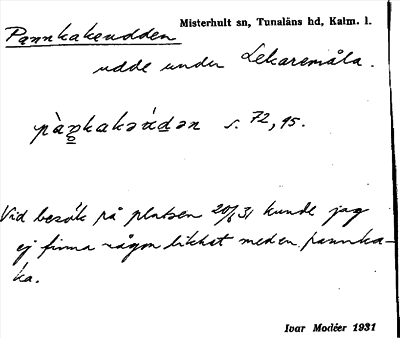 Pannkakeudden
Misterhult sn, Tunaläns hd, Kalm. l.
udde under Lekaremåla.
pàn̥kakəúdən s. 72, 95.
Vid besök på platsen 20/6 31 kunde jag
ej finna någon likhet med en pannka-
ka.
Ivar Modéer 1931